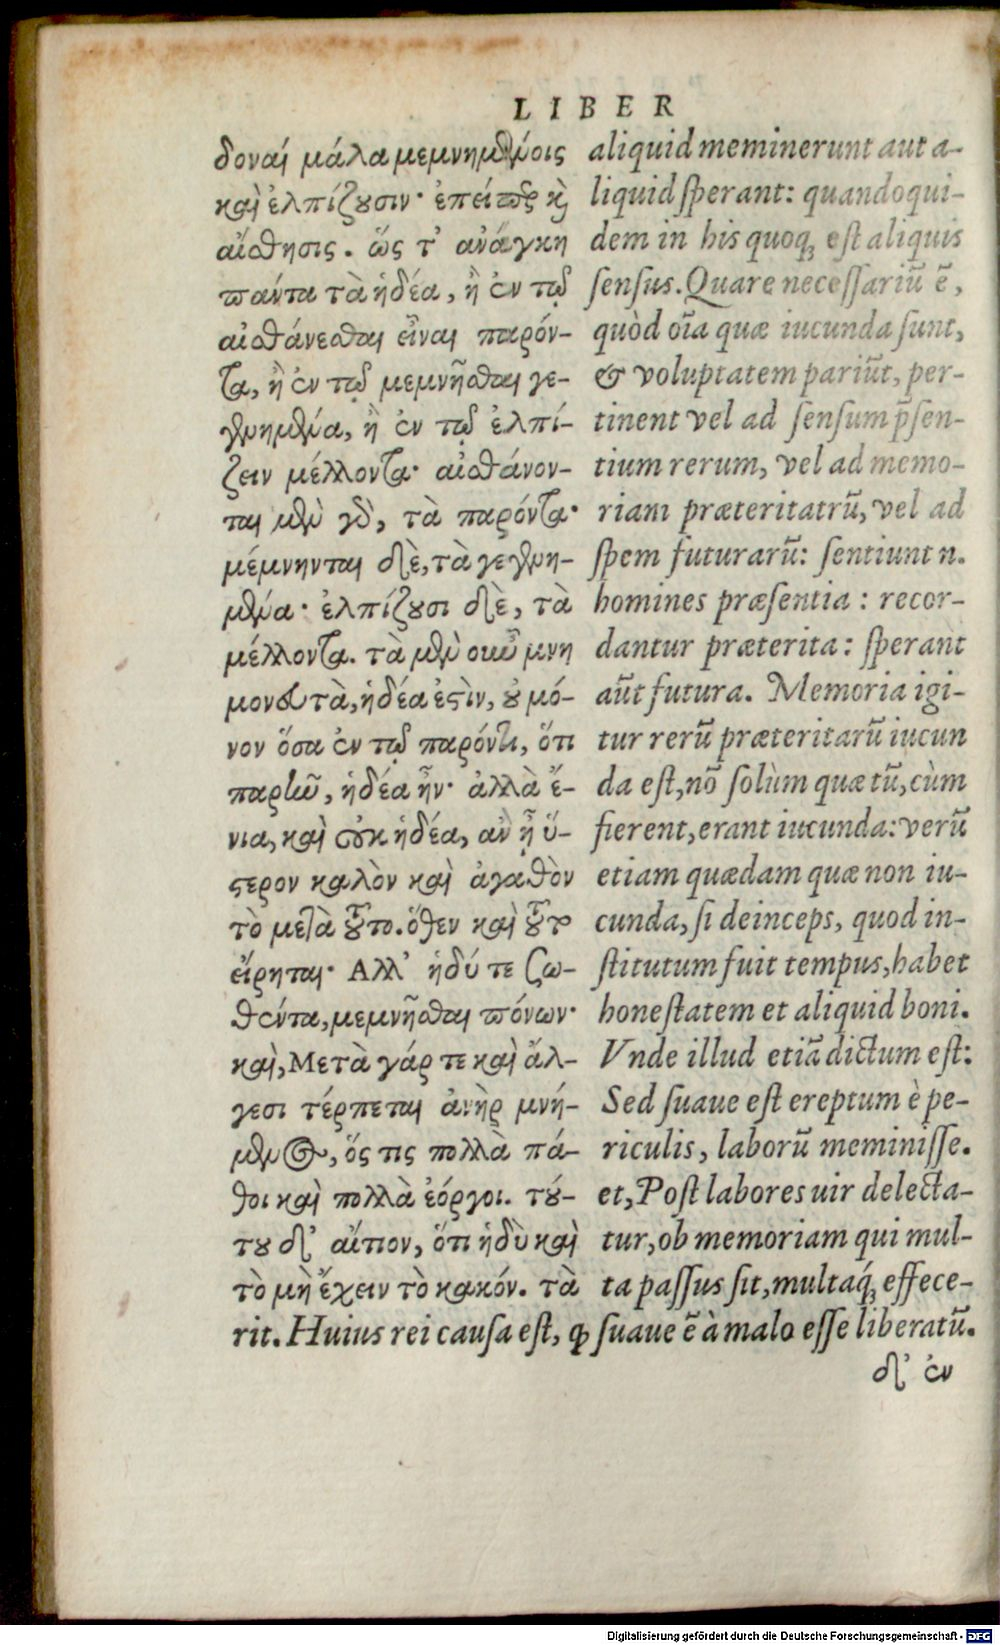 LIBER
δοναὶ μάλα μεμνημένοις
καὶ ἐλπίζουσιν· ἐπείπερ καὶ
αἴσθησις. ὥς τ' ἀνάγκη
πάντα τὰ ἡδέα, ἢ ἐν τῷ
αἰσθάνεσθαι εἶναι παρόν-
τα, ἢ ἐν τῷ μεμνῆσθαι γε-
γενημένα, ἢ ἐν τῷ ἐλπί-
ζειν μέλλοντα· αἰσθάνον-
ται μὲν γὸ, τὰ παρόντα·
μέμνηνται δὲ, τὰ γεγενη-
μένα· ἐλπίζουσι δὲ, τὰ
μέλλοντα. τὰ μὲν οὖν μνη
μονευτὰ, ἡδέα ἐστὶν, οὐ μό-
νον ὅσα ἐν τῷ παρόντι, ὅτι
παρῆν, ἡδέα ἦν· ἀλλὰ ἔ-
νια, καὶ οὐκ ἡδέα, ἂν ᾖ ὕ-
στερον καλὸν καὶ ἀγαθὸν
τὸ μετὰ τοῦτο. ὅθεν καὶ τοῦτ
εἴρηται· Αλλ' ἡδύ τε ζω-
θέντα, μεμνῆσθαι πόνων·
καὶ, Μετὰ γάρ τε καὶ ἄλ-
γεσι τέρπεται ἀνὴρ μνή-
μενος, ὅς τις πολλὰ πά-
θοι καὶ πολλὰ ἐόργοι. τού-
του δ' αἴτιον, ὅτι ἡδὺ καὶ
τὸ μὴ ἔχειν τὸ κακόν. τὰ
aliquid meminerunt aut a-
liquid ſperant: quandoqui-
dem in his quoqꝫ eſt aliquis
ſenſus. Quare neceſſariũ ẽ,
quòd oĩa quæ iucunda ſunt,
& voluptatem pariũt, per-
tinent vel ad ſenſum p̃ſen-
tium rerum, vel ad memo-
riam præteritatrũ, vel ad
ſpem futurarũ: ſentiunt n.
homines præſentia: recor-
dantur præterita: ſperant
aũt futura. Memoria igi-
tur rerũ præteritarũ iucun
da eſt, nõ ſolùm quæ tũ, cùm
fierent, erant iucunda: verũ
etiam quædam quæ non iu-
cunda, ſi deinceps, quod in-
ſtitutum fuit tempus, habet
honeſtatem et aliquid boni.
Vnde illud etiã dictum eſt:
Sed ſuaue eſt ereptum è pe-
riculis, laborũ meminiſſe.
et, Poſt labores uir delecta-
tur, ob memoriam qui mul-
ta paſſus ſit, multaq́ꝫ effece-
rit. Huius rei cauſa eſt, ꝙ ſuaue ẽ à malo eſſe liberatũ.
δ' ἐν
Digitalisierung gefördert durch die Deutsche Forschungsgemeinschaft - DFG